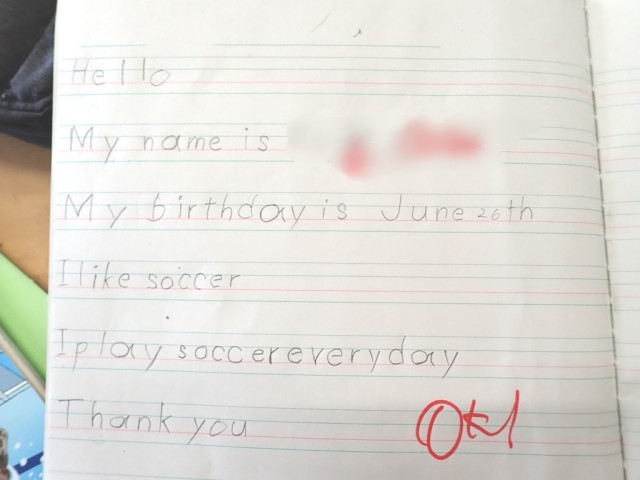 Hello
My name is
My birthday is June 26th
I like soccer
I play soccer everyday
Thank you
OK!